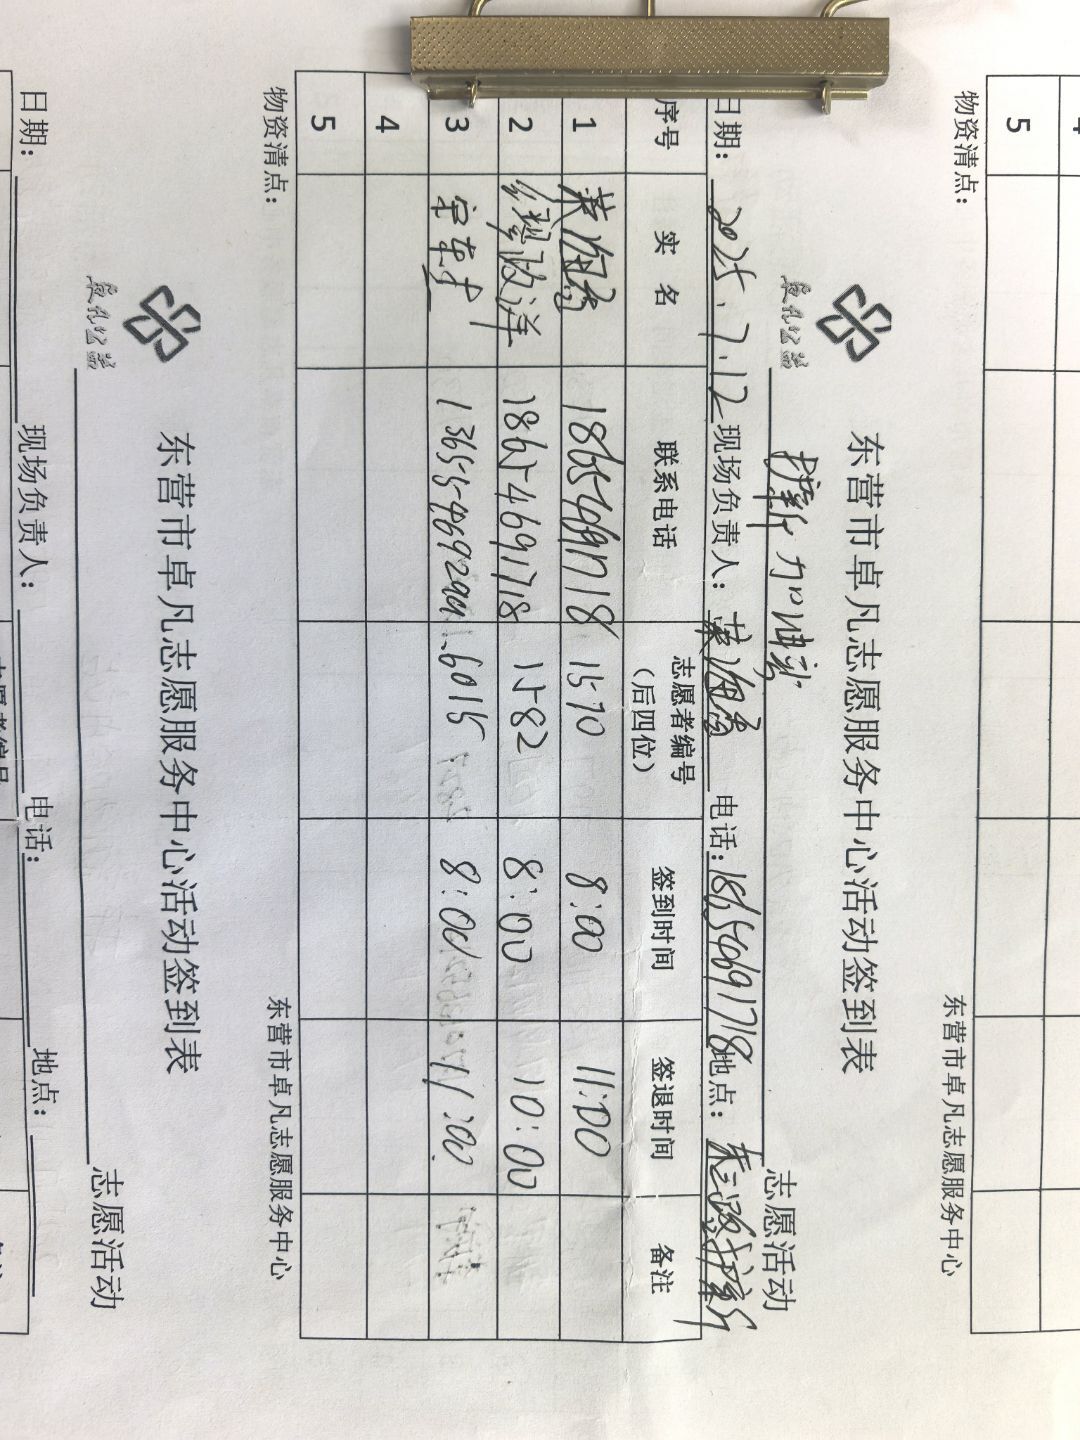 5
物资清点：
东营市卓凡志愿服务中心
东营市卓凡志愿服务中心活动签到表
卓凡公益
加油站 志愿活动
日期：2025.7.12 现场负责人： 电话：18654691718 地点：东三路
序号 实 名 联系电话 志愿者编号（后四位） 签到时间 签退时间 备注
1 18654691718 1570 8:00 11:00
2 政洋 18654691718 1582 8:00 10:00
3 6015 8:00 11:00
4
5
物资清点：
东营市卓凡志愿服务中心
东营市卓凡志愿服务中心活动签到表
卓凡公益
志愿活动
日期： 现场负责人： 电话： 地点：